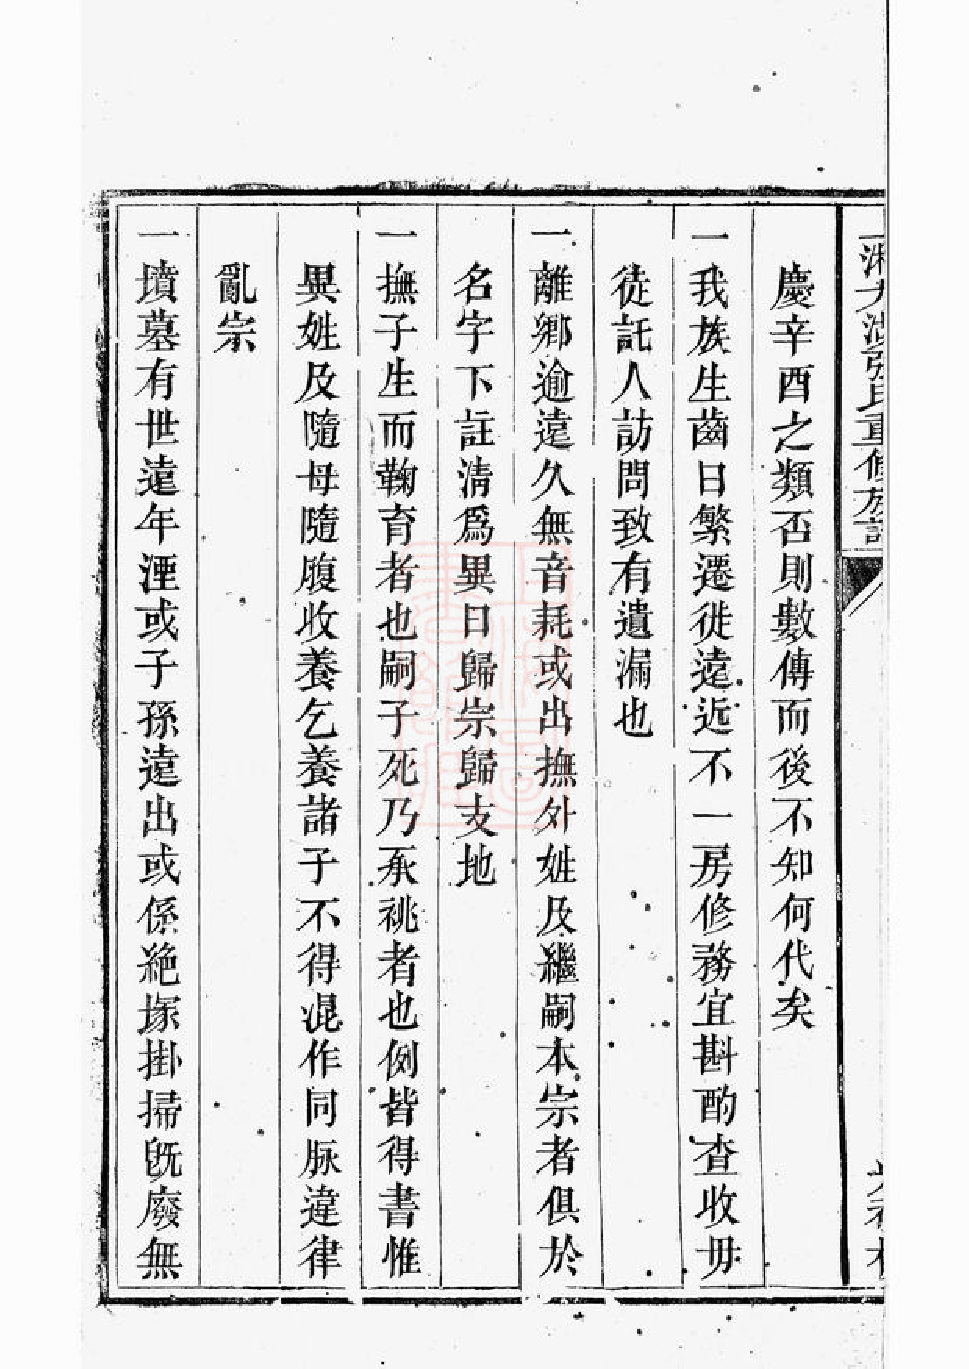 慶辛酉之類否則數傳而後不知何代矣
一我族生齒日繁遷徙遠近不一房修務宜斟酌查收毋
徒託人訪問致有遺漏也
一離鄉逾遠久無音耗或出撫外姓及繼嗣本宗者俱於
名字下註清爲異日歸宗歸支地
一撫子生而鞠育者也嗣子死乃承祧者也例皆得書惟
異姓及隨母隨腹收養乞養諸子不得混作同脉違律
亂宗
一墳墓有世遠年湮或子孫遠出或係絶塚掛掃旣廢無